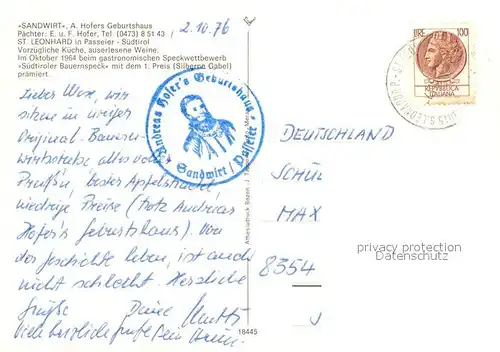 «SANDWIRT», A. Hofers Geburtshaus
Pächter: E. u. F. Hofer, Tel. (0473) 8 51 43
ST. LEONHARD in Passeier - Südtirol
Vorzügliche Küche, auserlesene Weine.
Im Oktober 1964 beim gastronomischen Speckwettbewerb
«Südtiroler Bauernspeck» mit dem 1. Preis (Silberne Gabel)
prämiert.
2.10.76
Andreas Hofer's Geburtshaus
Sandwirt / Passeier
LIRE 100
REPVBBLICA
ITALIANA
Lieber Max, wir
sitzen in uriger
Original-Bauern-
wirtstube alles voller
Preuß'n, bester Apfelstrudel
niedrige Preise (trotz Andreas
Hofer's Geburtshaus). Von
der Geschichte leben, ist auch
nicht schlecht. Herzliche
Grüße Deine
Viele herzliche Grüße Dein
DEUTSCHLAND
SCHUL
MAX
8354
privacy protection
GERMANY
18445